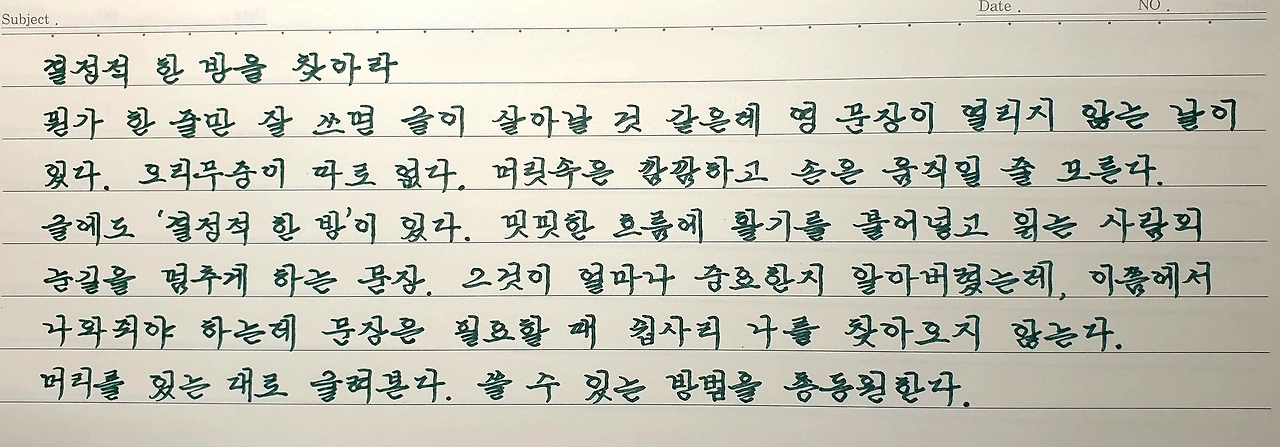 Subject .
Date .
NO .
결정적 한 방을 찾아라
뭔가 한 줄만 잘 쓰면 글이 살아날 것 같은데 영 문장이 열리지 않는 날이
있다. 오리무중이 따로 없다. 머릿속은 깜깜하고 손은 움직일 줄 모른다.
글에도 '결정적 한 방'이 있다. 밋밋한 흐름에 활기를 불어넣고 읽는 사람의
눈길을 멈추게 하는 문장. 그것이 얼마나 중요한지 알아버렸는데, 이쯤에서
나와줘야 하는데 문장은 필요할 때 쉽사리 나를 찾아오지 않는다.
머리를 있는 대로 굴려본다. 쓸 수 있는 방법을 총동원한다.